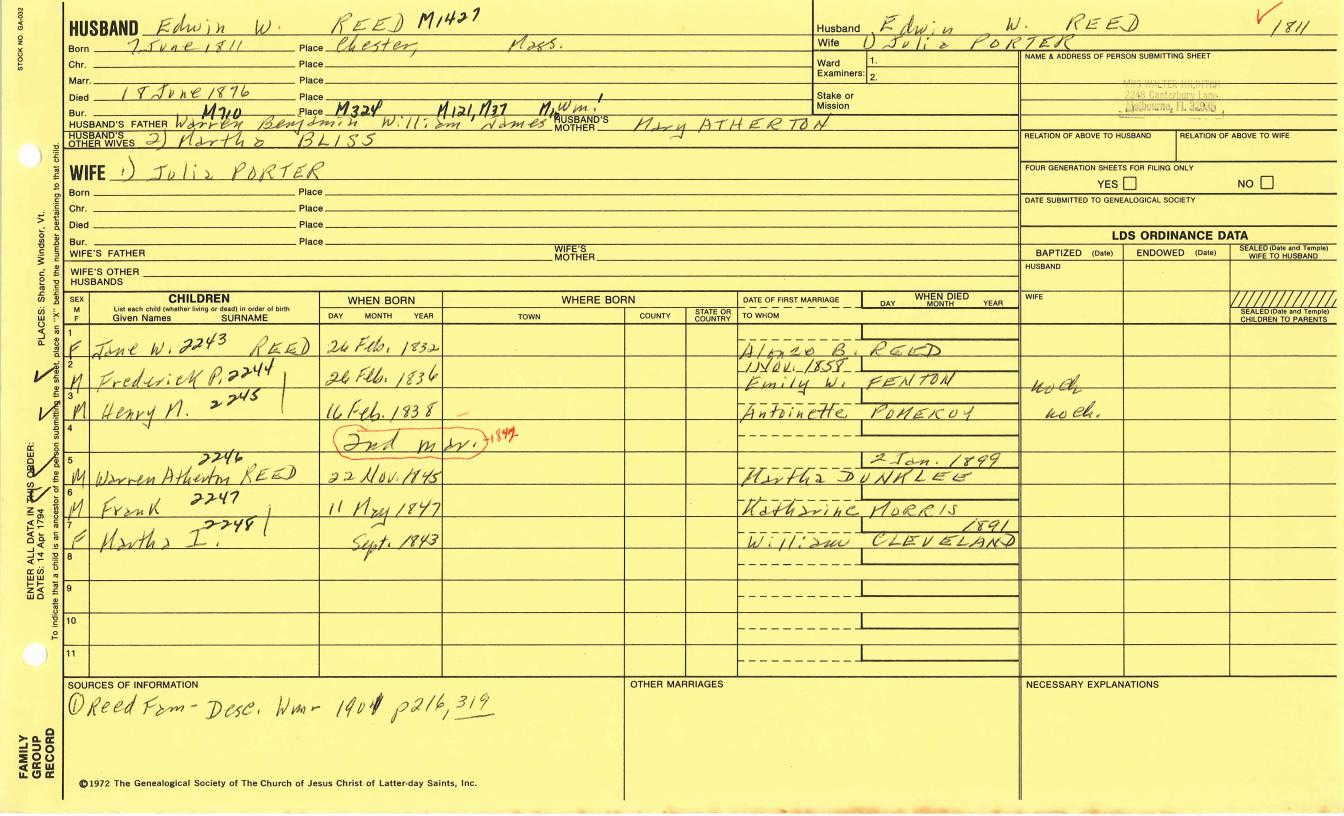 STOCK NO. GA-032
HUSBAND Edwin W. REED M1427
Born 7 June 1811 Place Chester, Mass.
Chr. Place
Marr. Place
Died 18 June 1876 Place
Bur. M710 Place M324 M121, M37 Wm!
HUSBAND'S FATHER Warren Benjamin William James HUSBAND'S MOTHER Mary ATHERTON
HUSBAND'S OTHER WIVES 2) Martha BLISS
WIFE 1) Julia PORTER
Born Place
Chr. Place
Died Place
Bur. Place
WIFE'S FATHER WIFE'S MOTHER
WIFE'S OTHER HUSBANDS
Husband Edwin W. REED 1811
Wife 1) Julia PORTER
Ward Examiners: 1. 2.
Stake or Mission
NAME & ADDRESS OF PERSON SUBMITTING SHEET
MRS WALTER
2248 Canterbury Lane
Melbourne, Fl. 32935
RELATION OF ABOVE TO HUSBAND RELATION OF ABOVE TO WIFE
FOUR GENERATION SHEETS FOR FILING ONLY
YES NO
DATE SUBMITTED TO GENEALOGICAL SOCIETY
LDS ORDINANCE DATA
BAPTIZED (Date) ENDOWED (Date) SEALED (Date and Temple) WIFE TO HUSBAND
HUSBAND
WIFE
SEALED (Date and Temple) CHILDREN TO PARENTS
SEX M F CHILDREN List each child (whether living or dead) in order of birth Given Names SURNAME WHEN BORN DAY MONTH YEAR WHERE BORN TOWN COUNTY STATE OR COUNTRY DATE OF FIRST MARRIAGE TO WHOM WHEN DIED DAY MONTH YEAR
1 F Jane W. 2243 REED 26 Feb. 1832 Alonzo B. REED
2 M Frederick P. 2244 26 Feb. 1836 1 Nov. 1858 Emily W. FENTON no ch
3 M Henry M. 2245 16 Feb. 1838 Antoinette POMEROY no ch.
4 2nd mar. -1842
5 M 2246 Warren Atherton REED 22 Nov. 1845 2 Jan. 1899 Martha DUNKLEE
6 M Frank 2247 11 May 1847 Katharine MORRIS
7 F Martha I. 2248 Sept. 1843 1891 William CLEVELAND
8
9
10
11
SOURCES OF INFORMATION
① Reed Fam - Desc. Wm - 1901 p216, 319
OTHER MARRIAGES
NECESSARY EXPLANATIONS
©1972 The Genealogical Society of The Church of Jesus Christ of Latter-day Saints, Inc.
FAMILY GROUP RECORD
ENTER ALL DATA IN THIS ORDER:
DATES: 14 Apr 1794 PLACES: Sharon, Windsor, Vt.
To indicate that a child is an ancestor of the person submitting the sheet, place an "X" behind the number pertaining to that child.